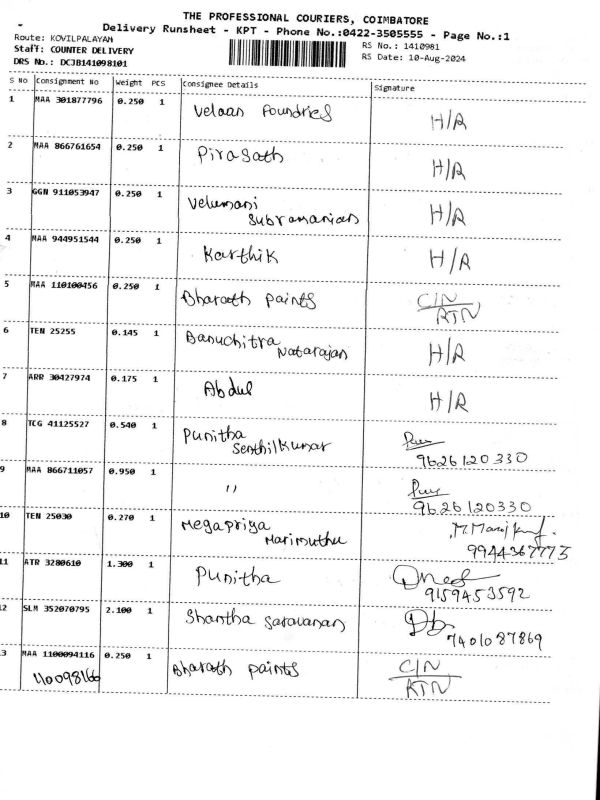 THE PROFESSIONAL COURIERS, COIMBATORE
Delivery Runsheet - KPT - Phone No.:0422-3505555 - Page No.:1
Route: KOVILPALAYAM
RS No.: 1410981
Staff: COUNTER DELIVERY
RS Date: 10-Aug-2024
DRS No.: DCJB141098101
S No Consignment No Weight PCS Consignee Details Signature
1 MAA 301877796 0.250 1 Velaan Foundries H/R
2 MAA 866761654 0.250 1 Pirasath H/R
3 GGN 911053947 0.250 1 Velumani
Subramanian H/R
4 MAA 944951544 0.250 1 Karthik H/R
5 MAA 110100456 0.250 1 Bharath paints C/N
RTN
6 TEN 25255 0.145 1 Banuchitra
Natarajan H/R
7 ARR 30427974 0.175 1 Abdul H/R
8 TCG 41125527 0.540 1 Punitha
Senthilkumar
9626120330
9 MAA 866711057 0.950 1 "
9626120330
10 TEN 25030 0.270 1 Megapriya
Marimuthu
9944367773
11 ATR 3280610 1.300 1 Punitha
9159453592
12 SLM 352070795 2.100 1 Shantha Saravanan
7401087869
3 MAA 1100094116 0.250 1 Bharath paints C/N
RTN